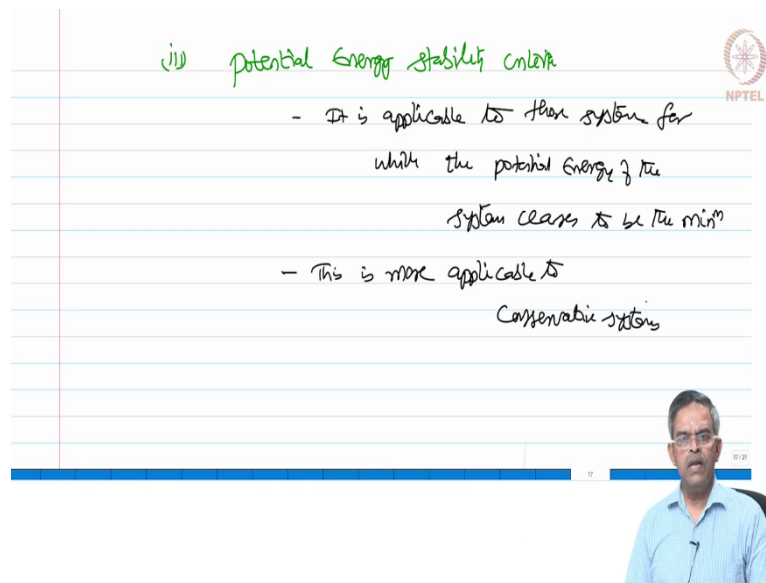 (ii) Potential Energy stability criteria
NPTEL
- It is applicable to those system for
which the potential Energy of the
system ceases to be the minm
- This is more applicable to
Conservative systems
17/21
17